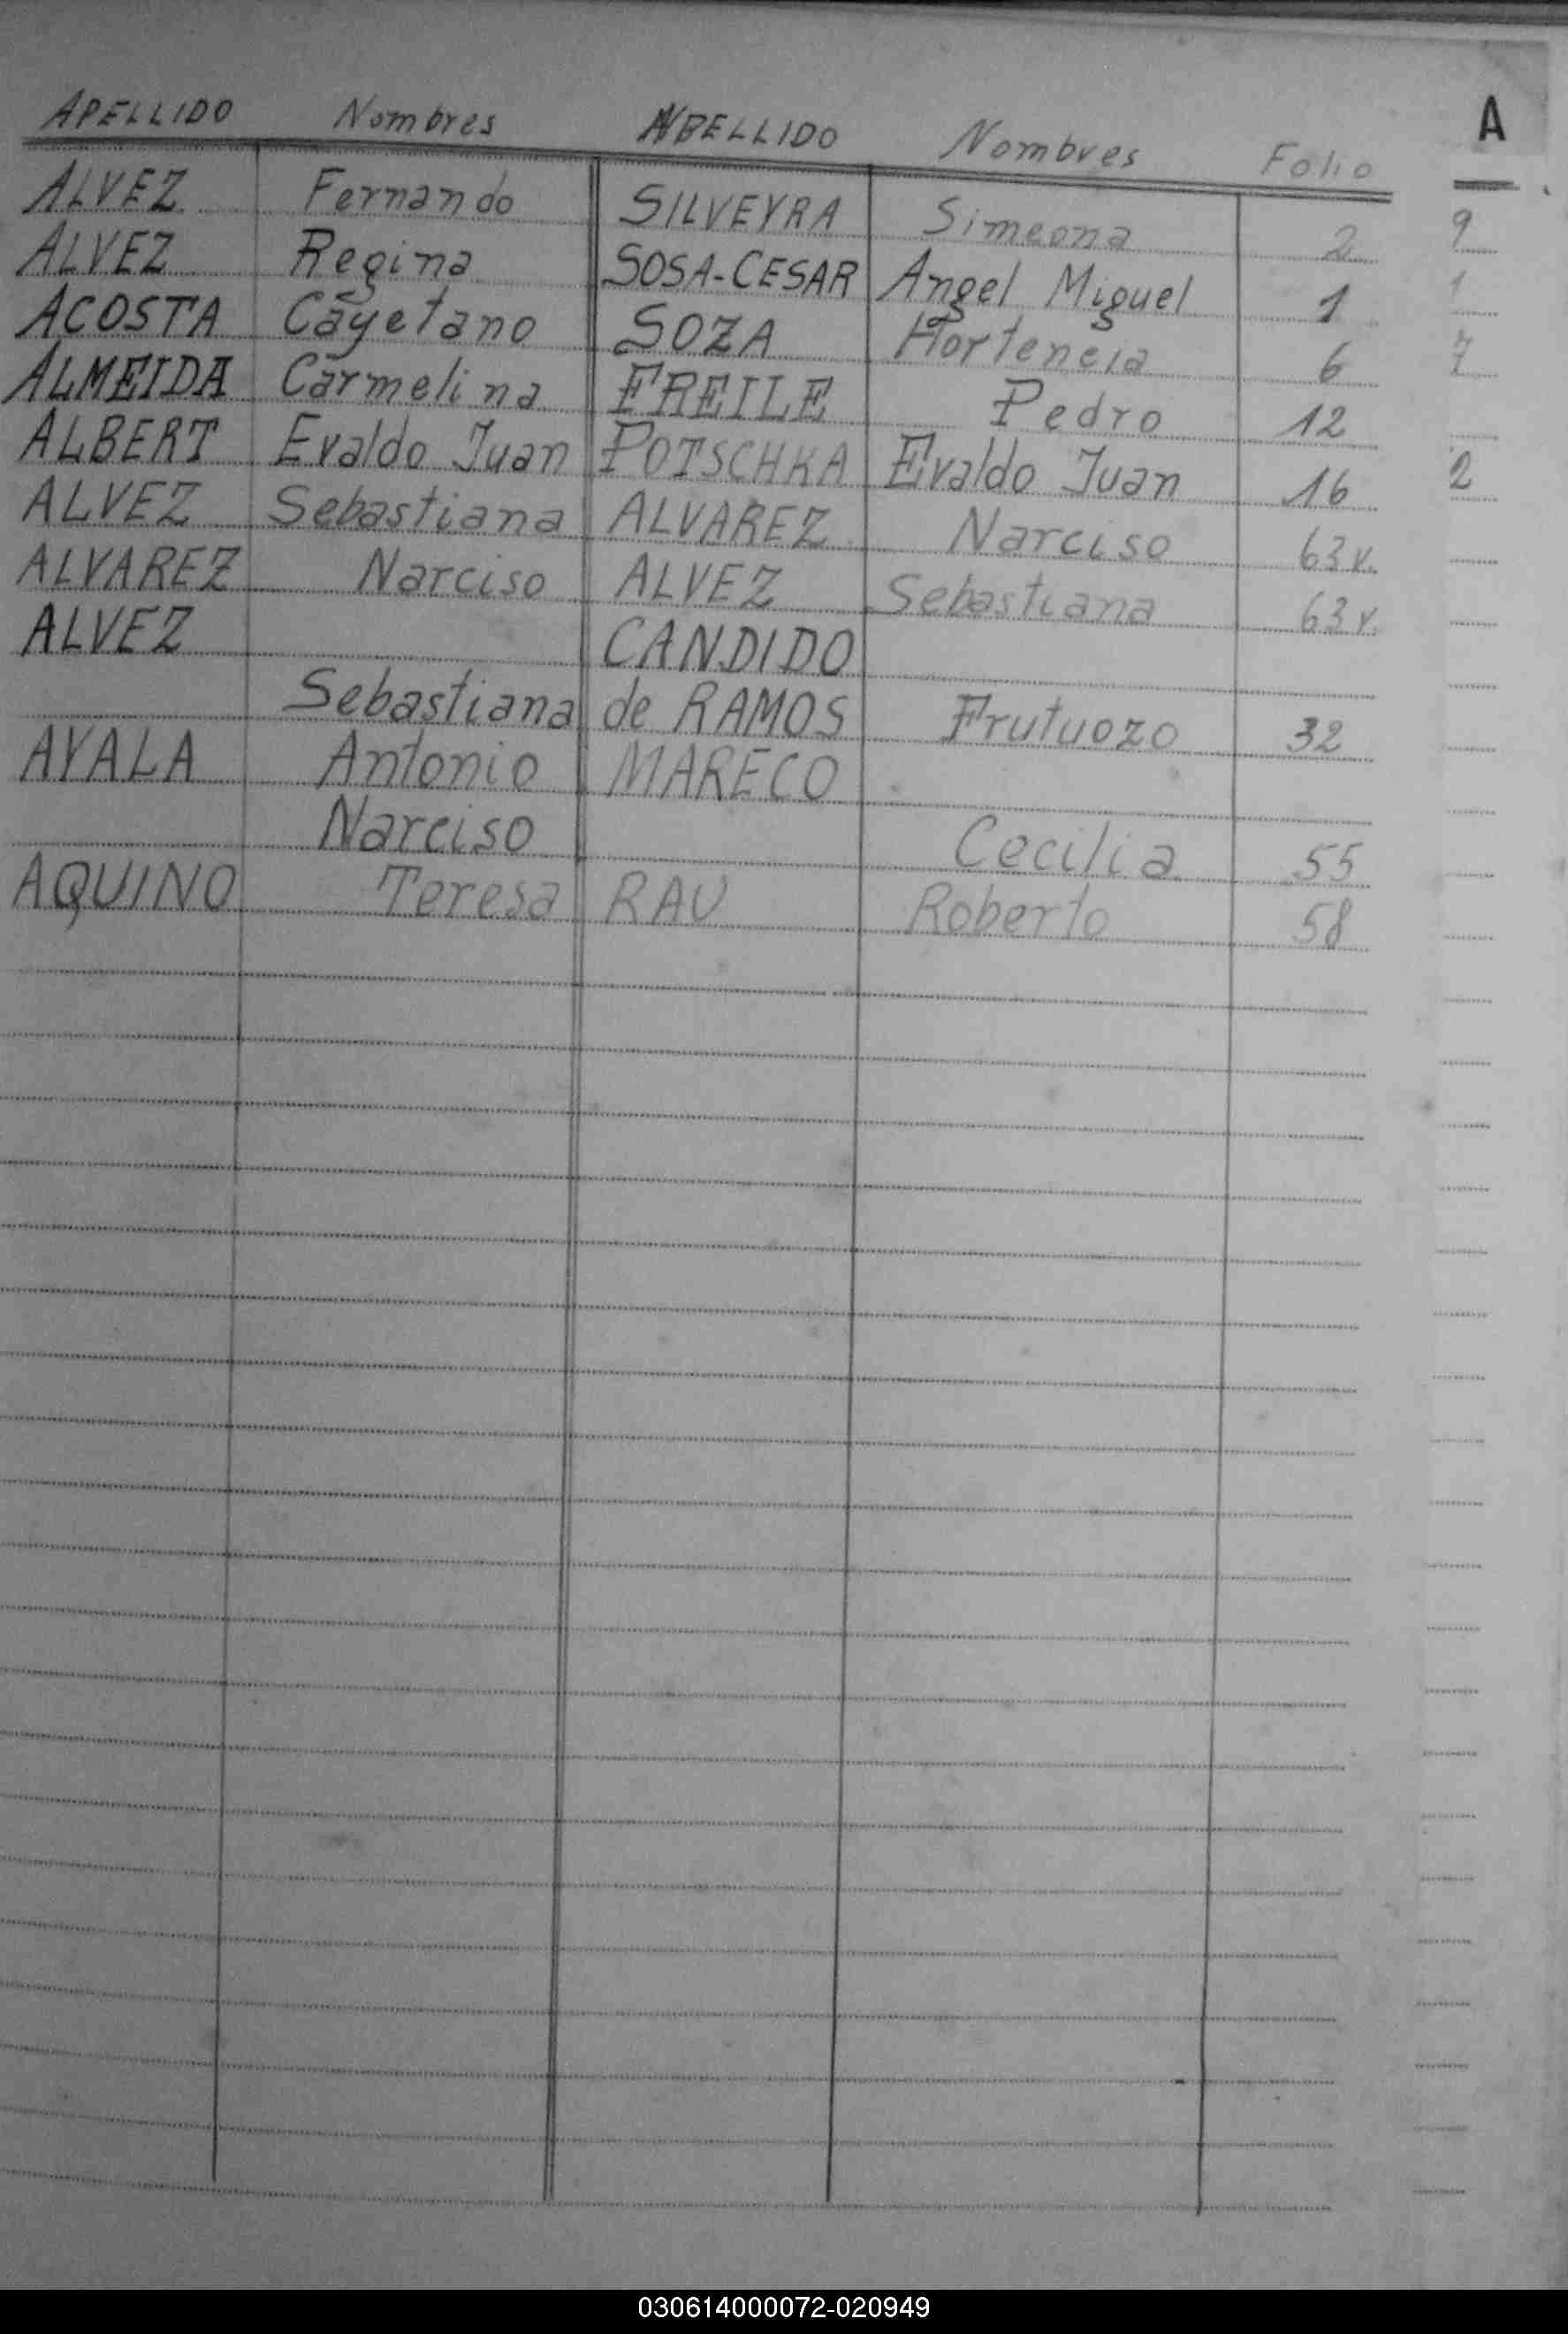 A
APELLIDO Nombres APELLIDO Nombres Folio
ALVEZ Fernando SILVEYRA Simeona 2 9
ALVEZ Regina SOSA-CESAR Angel Miguel 1 1
ACOSTA Cayetano SOZA Hortencia 6 7
ALMEIDA Carmelina FREILE Pedro 12
ALBERT Evaldo Juan POTSCHKA Evaldo Juan 16 2
ALVEZ Sebastiana ALVAREZ Narciso 63 v.
ALVAREZ Narciso ALVEZ Sebastiana 63 v.
ALVEZ CANDIDO
Sebastiana de RAMOS Frutuozo 32
AYALA Antonio MARECO
Narciso Cecilia 55
AQUINO Teresa RAU Roberto 58
030614000072-020949